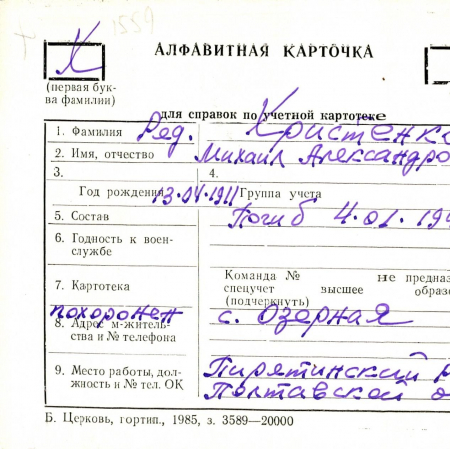 1559
Х
АЛФАВИТНАЯ КАРТОЧКА
(первая бук-
ва фамилии)
для справок по учетной картотеке
1. Фамилия Ряд. Христенко
2. Имя, отчество Михаил Александро
3. 4.
Год рождения 13.04.1911 Группа учета
5. Состав Погиб 4.01.194
6. Годность к воен-
службе
7. Картотека
Команда № не предназ
спецучет высшее образо
(подчеркнуть)
похоронен
8. Адрес м-житель-
ства и № телефона с. Озерная
9. Место работы, дол-
жность и № тел. ОК Пирятинский р
Полтавской о
Б. Церковь, гортип., 1985, з. 3589—20000